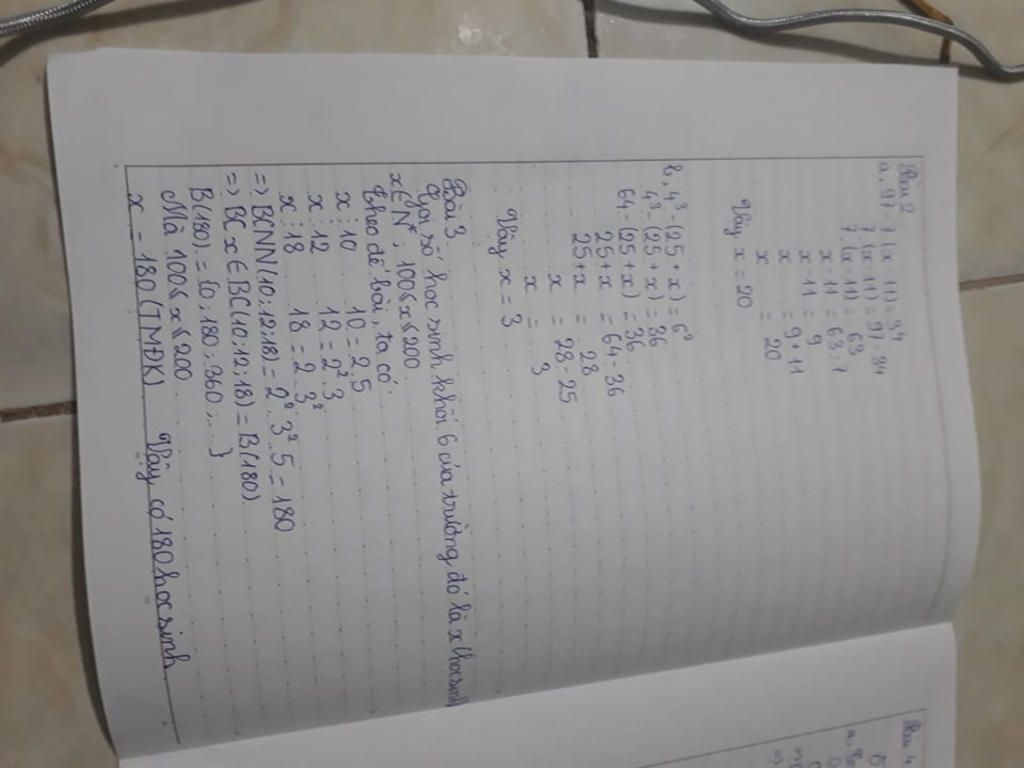 Bài 2
a, 97 - 7(x - 11) = 34
7.(x - 11) = 97 - 34
7.(x - 11) = 63
x - 11 = 63 : 7
x - 11 = 9
x = 9 + 11
x = 20
Vậy x = 20
b, 4³ - (25 + x) = 6²
4³ - (25 + x) = 36
64 - (25 + x) = 36
25 + x = 64 - 36
25 + x = 28
x = 28 - 25
x = 3
Vậy x = 3
Bài 3
Gọi số học sinh khối 6 của trường đó là x (học sinh)
x ∈ N*; 100 ≤ x ≤ 200
Theo đề bài, ta có:
x ⋮ 10 10 = 2.5
x ⋮ 12 12 = 2².3
x ⋮ 18 18 = 2.3²
=> BCNN(10;12;18) = 2².3².5 = 180
=> BC x ∈ BC(10;12;18) = B(180)
B(180) = {0; 180; 360; ...}
Mà 100 ≤ x ≤ 200
x = 180 (TMĐK) Vậy có 180 học sinh
Bài 4
a,